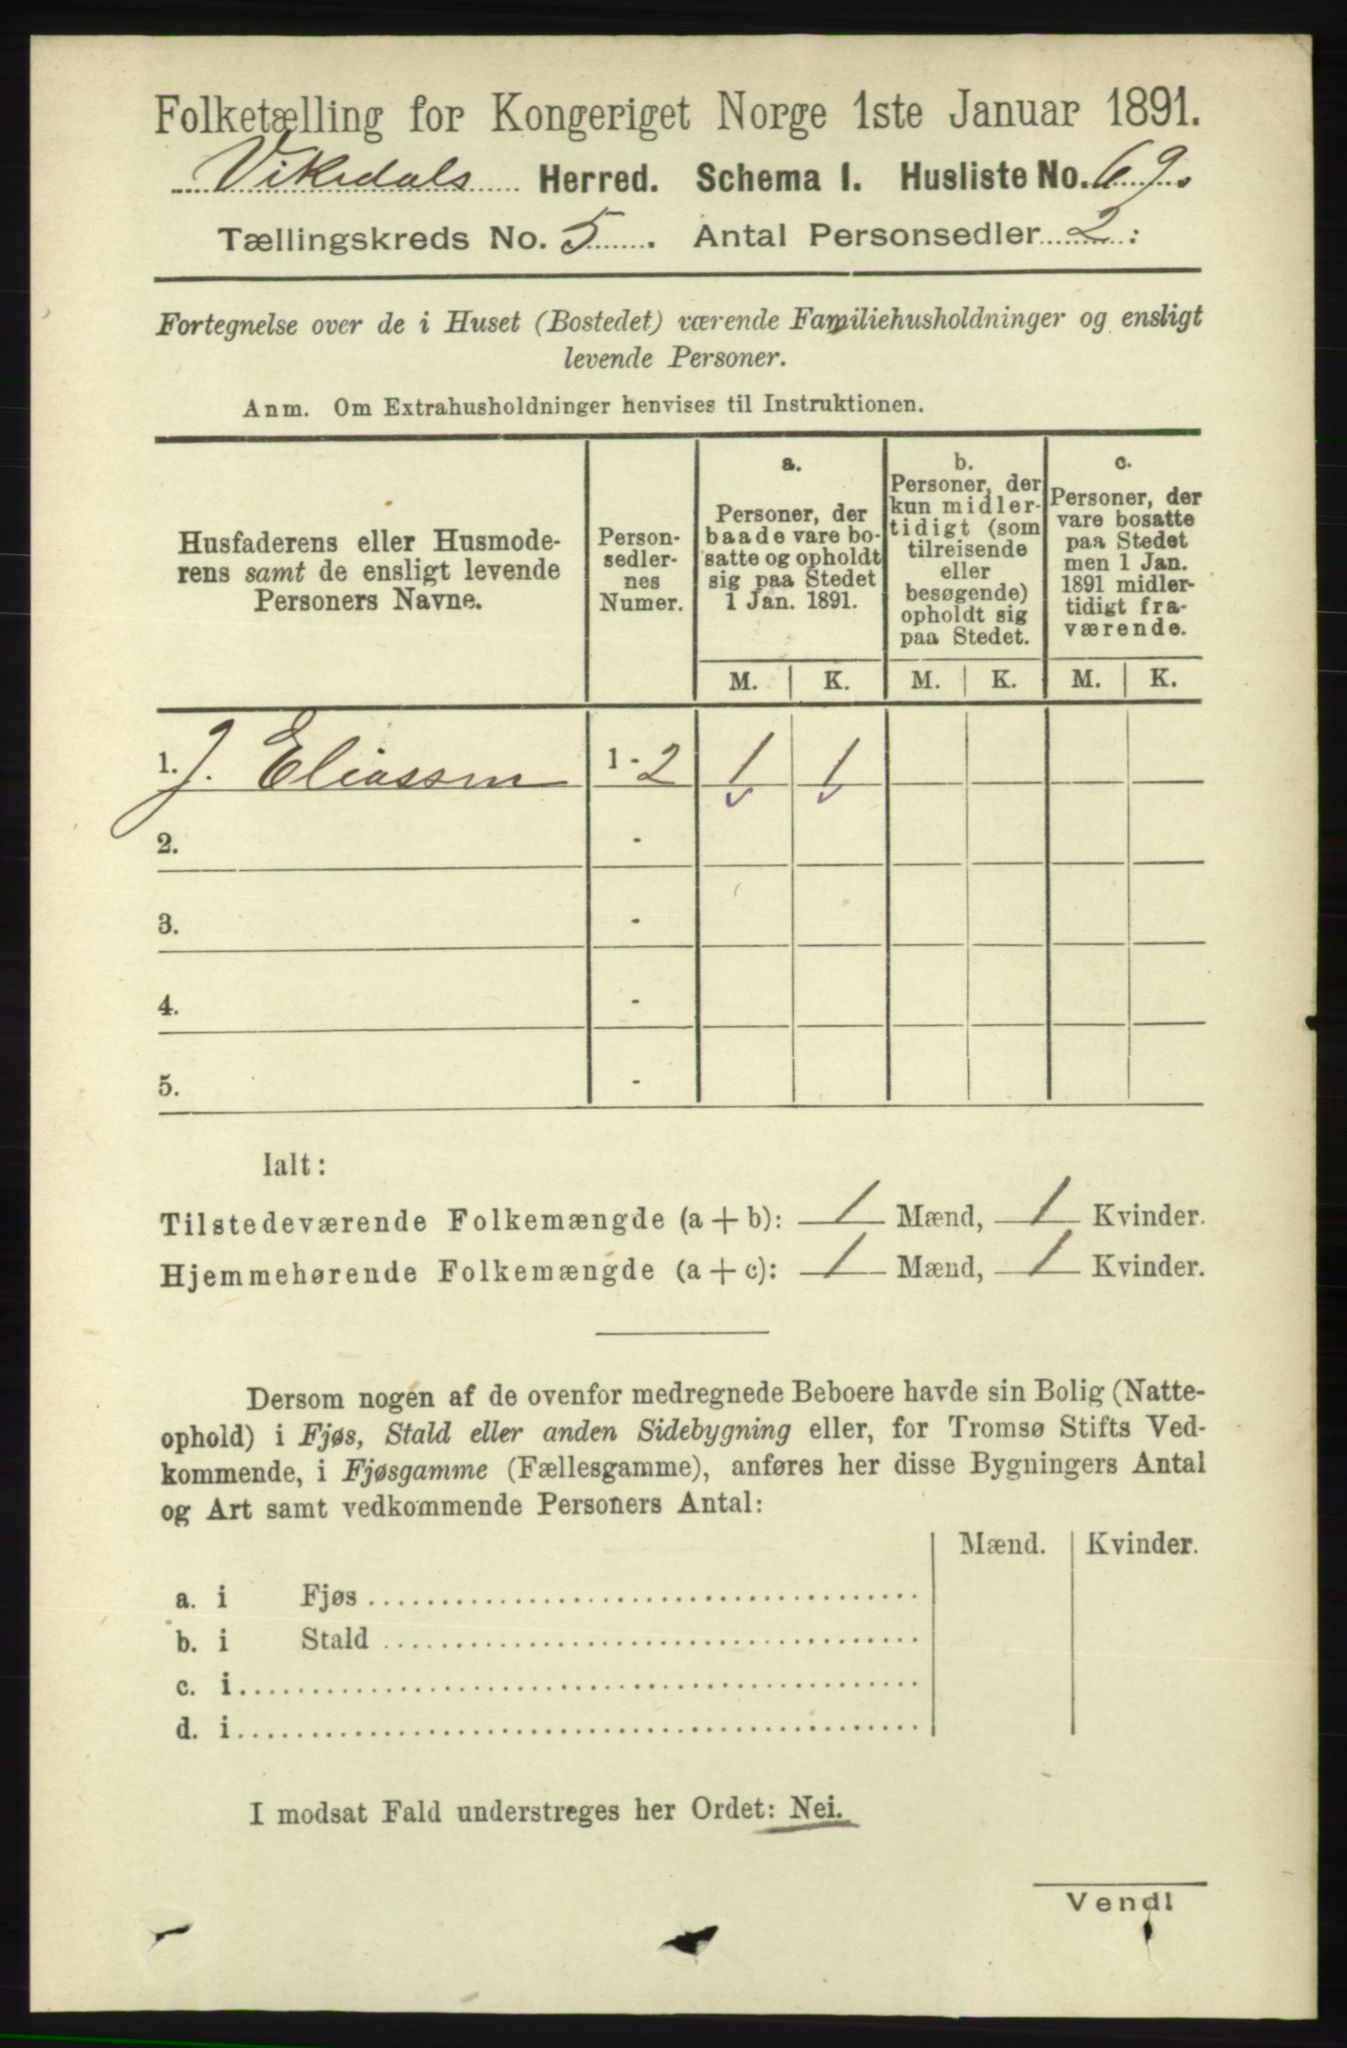 Folketælling for Kongeriget Norge 1ste Januar 1891.
Vikedals Herred. Schema I. Husliste No. 69.
Tællingskreds No. 5. Antal Personsedler 2:
Fortegnelse over de i Huset (Bostedet) værende Familiehusholdninger og ensligt
levende Personer.
Anm. Om Extrahusholdninger henvises til Instruktionen.
Husfaderens eller Husmode-
rens samt de ensligt levende
Personers Navne.
Person-
sedler-
nes
Numer.
a.
Personer, der
baade vare bo-
satte og opholdt
sig paa Stedet
1 Jan. 1891.
b.
Personer, der
kun midler-
tidigt (som
tilreisende
eller
besøgende)
opholdt sig
paa Stedet.
c.
Personer, der
vare bosatte
paa Stedet
men 1 Jan.
1891 midler-
tidigt fra-
værende.
M. K. M. K. M. K.
1. J. Eliassen 1-2 1 1
2. -
3. -
4. -
5. -
Ialt:
Tilstedeværende Folkemængde (a+b): 1 Mænd, 1 Kvinder.
Hjemmehørende Folkemængde (a+c): 1 Mænd, 1 Kvinder.
Dersom nogen af de ovenfor medregnede Beboere havde sin Bolig (Natte-
ophold) i Fjøs, Stald eller anden Sidebygning eller, for Tromsø Stifts Ved-
kommende, i Fjøsgamme (Fællesgamme), anføres her disse Bygningers Antal
og Art samt vedkommende Personers Antal:
Mænd. Kvinder.
a. i Fjøs
b. i Stald
c. i
d. i
I modsat Fald understreges her Ordet: Nei.
Vendl